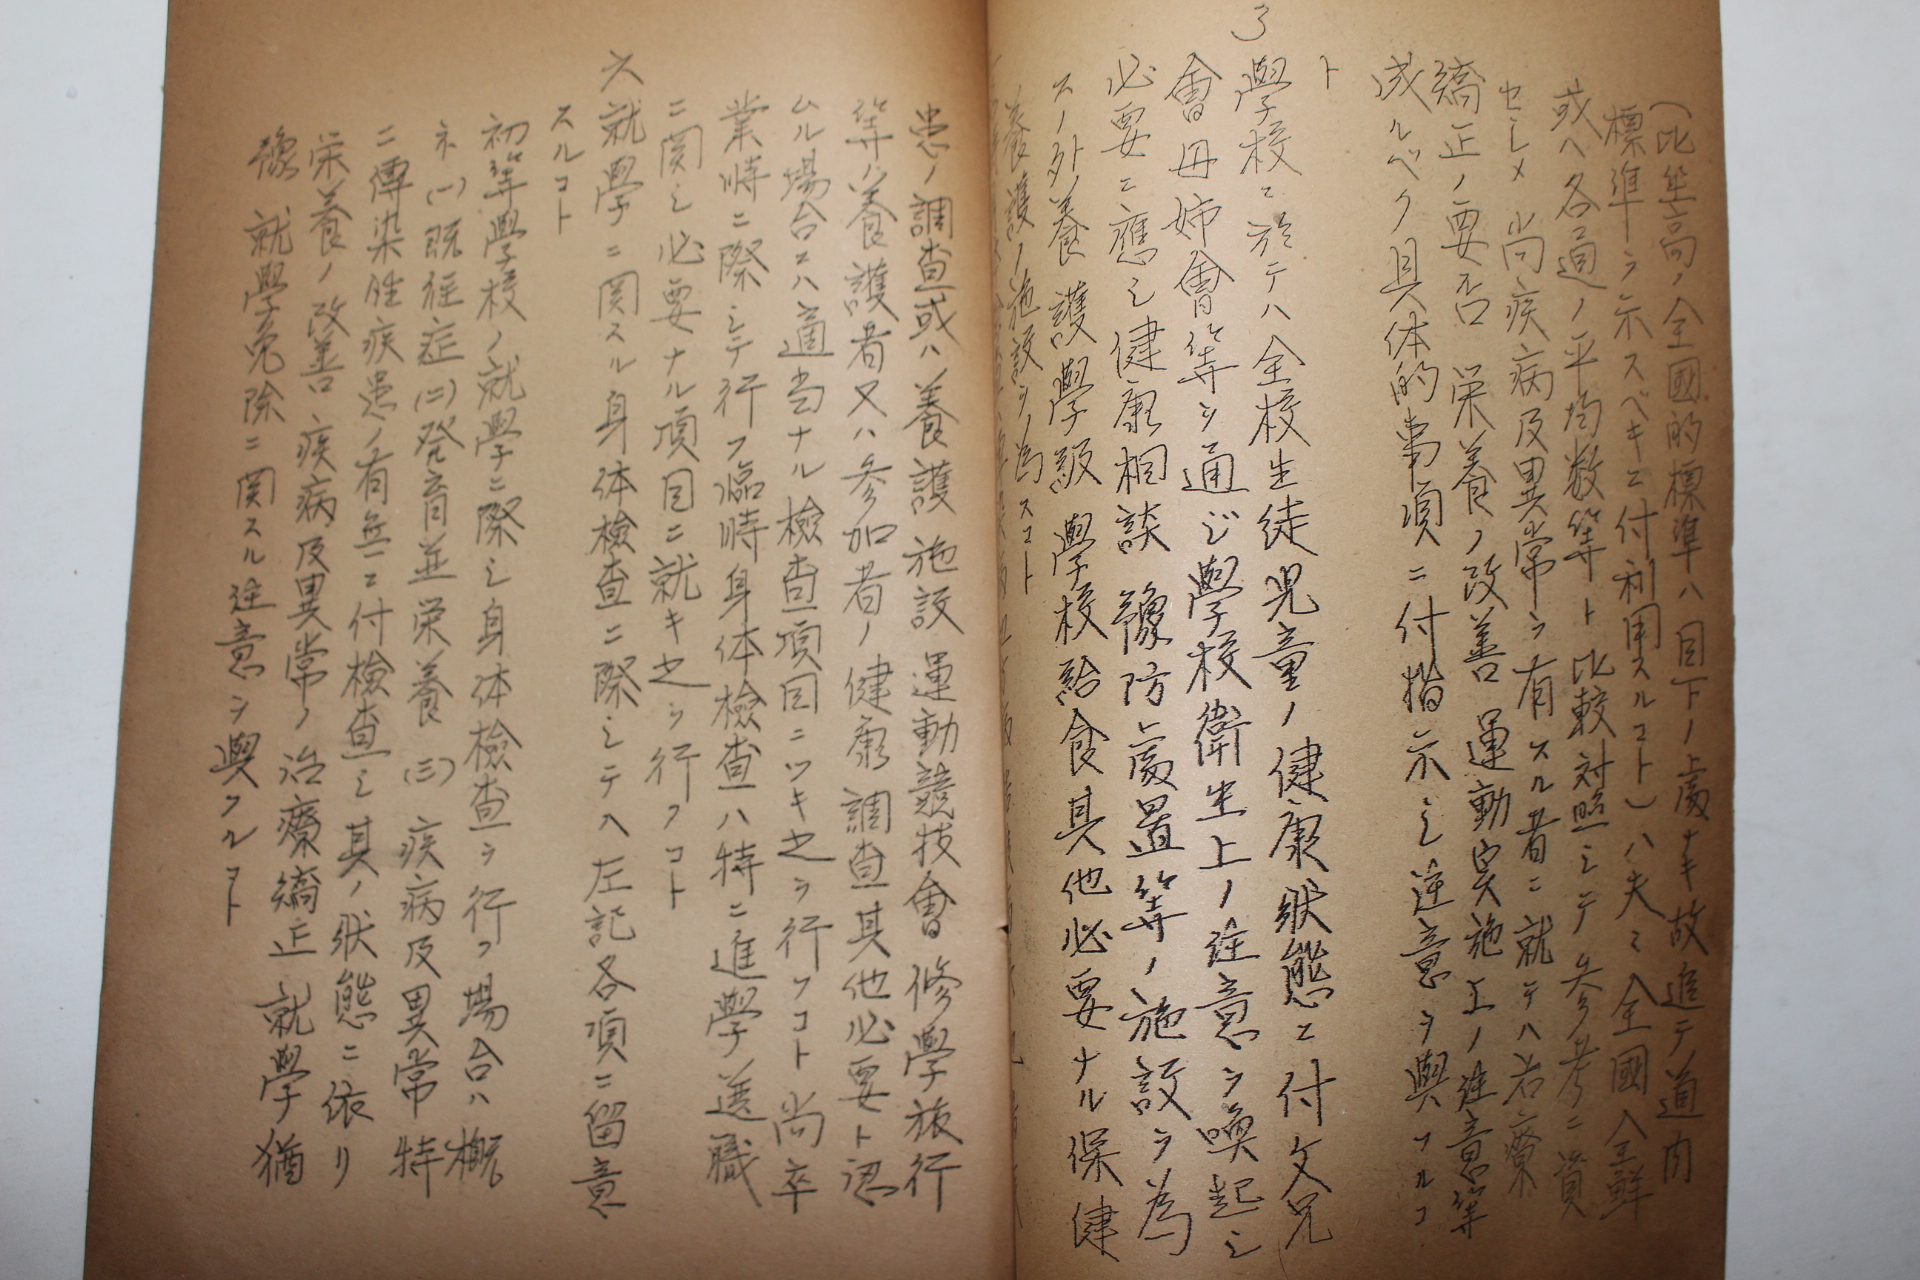 (比坐高ノ全國的標準ハ目下ノ處ナキ故追テ道内
標準ヲ示スベキニ付利用スルコト)ハ夫々全國全鮮
或ハ各道ノ平均数等ト比較対照シテ参考ニ資
セシメ尚疾病及異常ヲ有スル者ニ就テハ治療
矯正ノ要否栄養ノ改善運動実施上ノ注意等
成ルベク具体的事項ニ付指示シ注意ヲ與フルコ
ト
3 學校ニ於テハ全校生徒児童ノ健康状態ニ付父兄
會母姉會等ヲ通ジ學校衛生上ノ注意ヲ喚起シ
必要ニ應シ健康相談豫防處置等ノ施設ヲ為
スノ外養護學級學校給食其他必要ナル保健
養護ノ施設ヲ為スコト
患ノ調査或ハ養護施設運動競技會修學旅行
等ハ養護者又ハ参加者ノ健康調査其他必要ト認
ムル場合ニハ適当ナル檢査項目ニツキ之ヲ行フコト尚卒
業時ニ際シテ行フ臨時身体檢査ハ特ニ進學選職
ニ関シ必要ナル項目ニ就キ之ヲ行フコト
六 就學ニ関スル身体檢査ニ際シテハ左記各項ニ留意
スルコト
初等學校ノ就學ニ際シ身体檢査ヲ行フ場合ハ概
ネ(一)既往症(二)発育並栄養(三)疾病及異常特
ニ傳染性疾患ノ有無ニ付檢査シ其ノ状態ニ依リ
栄養ノ改善疾病及異常ノ治療矯正就學猶
豫就學免除ニ関スル注意ヲ與フルコト